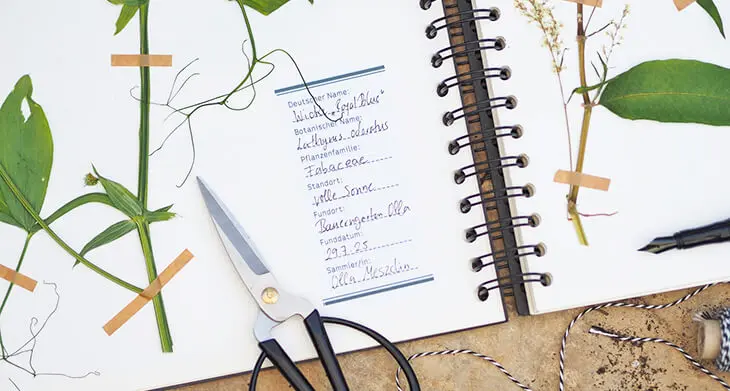 Deutscher Name:
Wicke „Royal Blue“
Botanischer Name:
Lathyrus odoratus
Pflanzenfamilie:
Fabaceae
Standort:
volle Sonne
Fundort:
Bauerngarten Olla
Funddatum:
29.7.25
Sammler/in:
Olla Meszelin